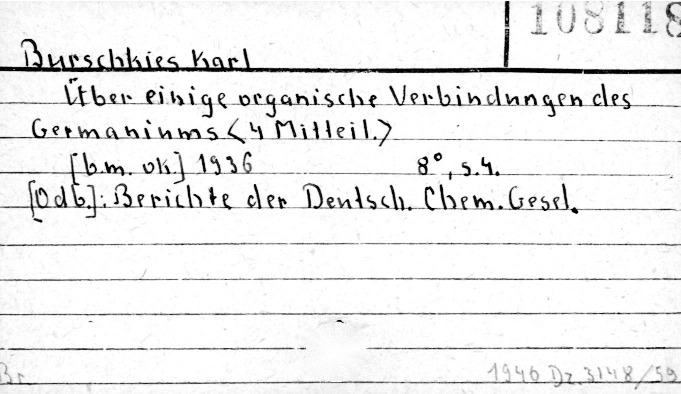 108118
Burschkies Karl
Über einige organische Verbindungen des
Germaniums <4 Mitteil.>
[b.m. ok.] 1936 8°, s.4.
[Odb.]: Berichte der Deutsch. Chem. Gesel.
Br. 1946 Dz. 3148/59